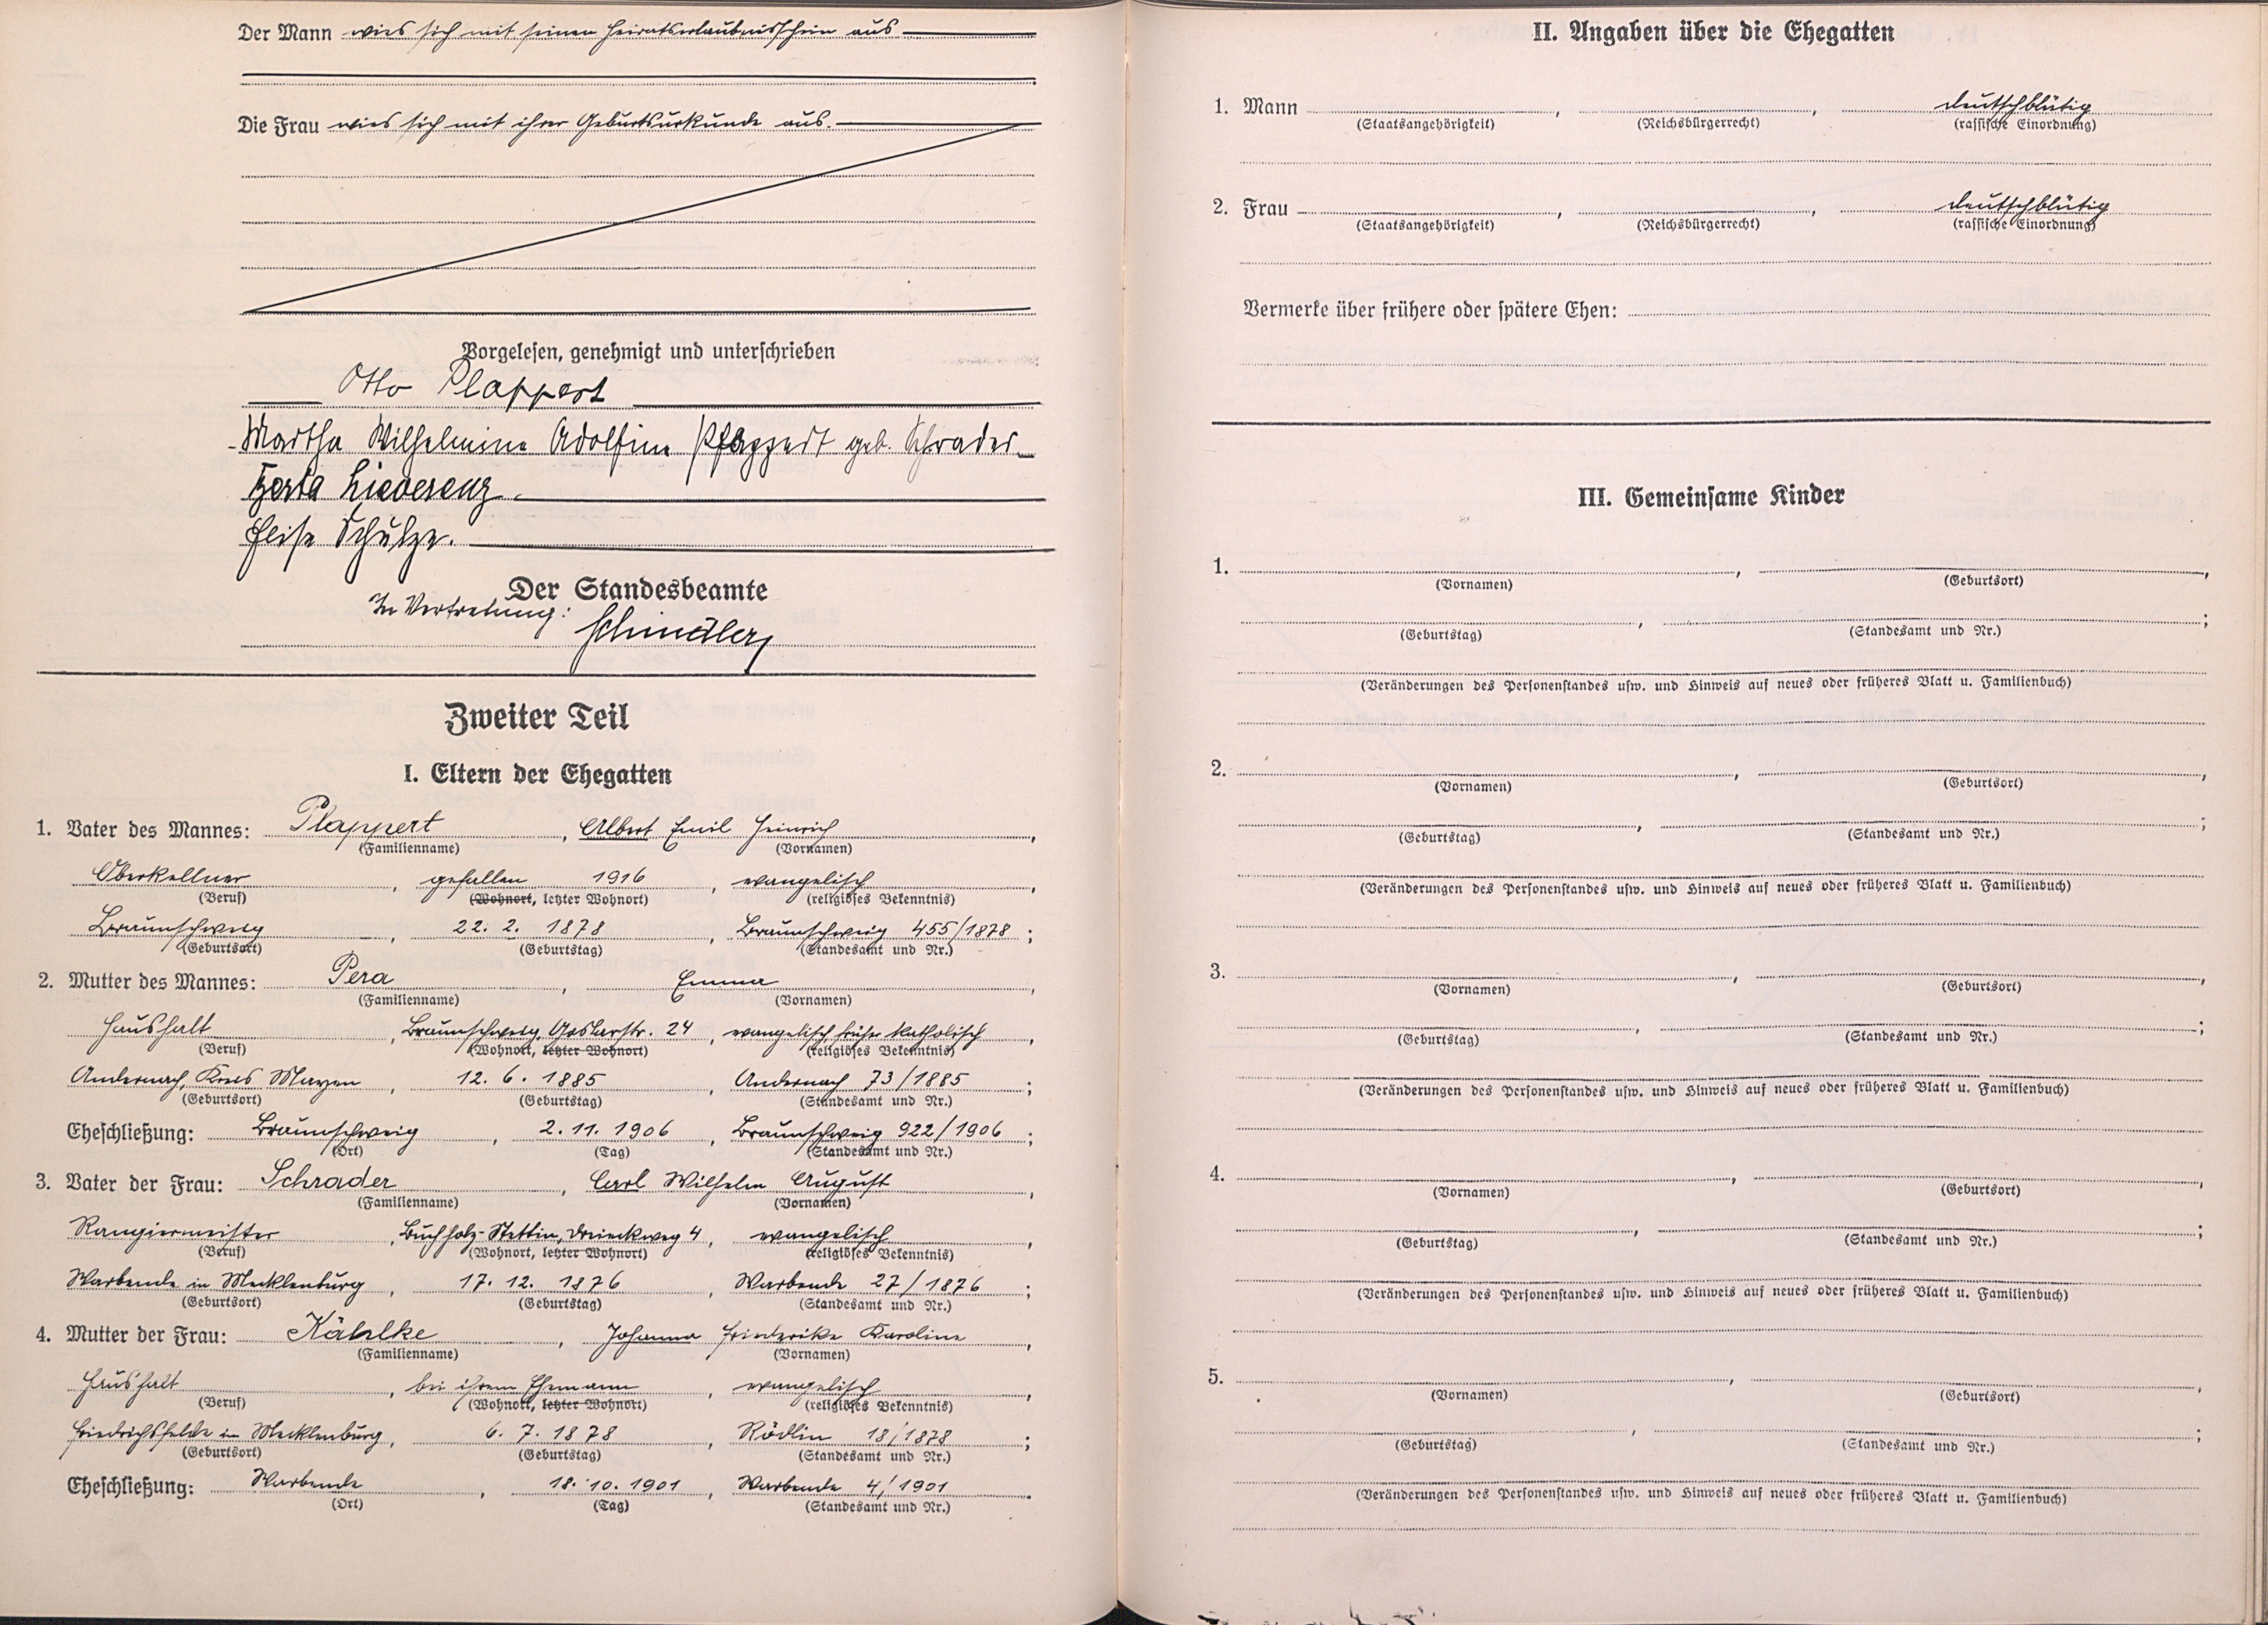 Der Mann wies sich mit seinem Heiratserlaubnisschein aus
Die Frau wies sich mit ihrer Geburtsurkunde aus.
Vorgelesen, genehmigt und unterschrieben
Otto Plappert
Martha Wilhelmine Adolfine Plappert geb. Schrader
Herta Lieverenz.
Elise Schulze.
Der Standesbeamte
In Vertretung: Schindler
Zweiter Teil
I. Eltern der Ehegatten
1. Vater des Mannes: Plappert, Albert Emil Heinrich,
(Familienname) (Vornamen)
Oberkellner, gefallen 1916, evangelisch,
(Beruf) (Wohnort, letzter Wohnort) (religiöses Bekenntnis)
Braunschweig, 22. 2. 1878, Braunschweig 455/1878;
(Geburtsort) (Geburtstag) (Standesamt und Nr.)
2. Mutter des Mannes: Pera, Emma,
(Familienname) (Vornamen)
Haushalt, Braunschweig, Goslarstr. 24, evangelisch, früher katholisch,
(Beruf) (Wohnort, letzter Wohnort) (religiöses Bekenntnis)
Andernach, Kreis Mayen, 12. 6. 1885, Andernach 73/1885;
(Geburtsort) (Geburtstag) (Standesamt und Nr.)
Eheschließung: Braunschweig, 2. 11. 1906, Braunschweig 922/1906;
(Ort) (Tag) (Standesamt und Nr.)
3. Vater der Frau: Schrader, Carl Wilhelm August,
(Familienname) (Vornamen)
Rangiermeister, Buchholz-Stettin, Dreieckweg 4, evangelisch,
(Beruf) (Wohnort, letzter Wohnort) (religiöses Bekenntnis)
Warbende in Mecklenburg, 17. 12. 1876, Warbende 27/1876;
(Geburtsort) (Geburtstag) (Standesamt und Nr.)
4. Mutter der Frau: Kählke, Johanna Friederike Karoline,
(Familienname) (Vornamen)
Haushalt, bei ihrem Ehemann, evangelisch,
(Beruf) (Wohnort, letzter Wohnort) (religiöses Bekenntnis)
Friedrichsfelde in Mecklenburg, 6. 7. 1878, Rödlin 18/1878;
(Geburtsort) (Geburtstag) (Standesamt und Nr.)
Eheschließung: Warbende, 18. 10. 1901, Warbende 4/1901.
(Ort) (Tag) (Standesamt und Nr.)
II. Angaben über die Ehegatten
1. Mann , , deutschblütig
(Staatsangehörigkeit) (Reichsbürgerrecht) (rassische Einordnung)
2. Frau , , deutschblütig
(Staatsangehörigkeit) (Reichsbürgerrecht) (rassische Einordnung)
Vermerke über frühere oder spätere Ehen:
III. Gemeinsame Kinder
1. , ,
(Vornamen) (Geburtsort)
, ;
(Geburtstag) (Standesamt und Nr.)
(Veränderungen des Personenstandes usw. und Hinweis auf neues oder früheres Blatt u. Familienbuch)
2. , ,
(Vornamen) (Geburtsort)
, ;
(Geburtstag) (Standesamt und Nr.)
(Veränderungen des Personenstandes usw. und Hinweis auf neues oder früheres Blatt u. Familienbuch)
3. , ,
(Vornamen) (Geburtsort)
, ;
(Geburtstag) (Standesamt und Nr.)
(Veränderungen des Personenstandes usw. und Hinweis auf neues oder früheres Blatt u. Familienbuch)
4. , ,
(Vornamen) (Geburtsort)
, ;
(Geburtstag) (Standesamt und Nr.)
(Veränderungen des Personenstandes usw. und Hinweis auf neues oder früheres Blatt u. Familienbuch)
5. , ,
(Vornamen) (Geburtsort)
, ;
(Geburtstag) (Standesamt und Nr.)
(Veränderungen des Personenstandes usw. und Hinweis auf neues oder früheres Blatt u. Familienbuch)